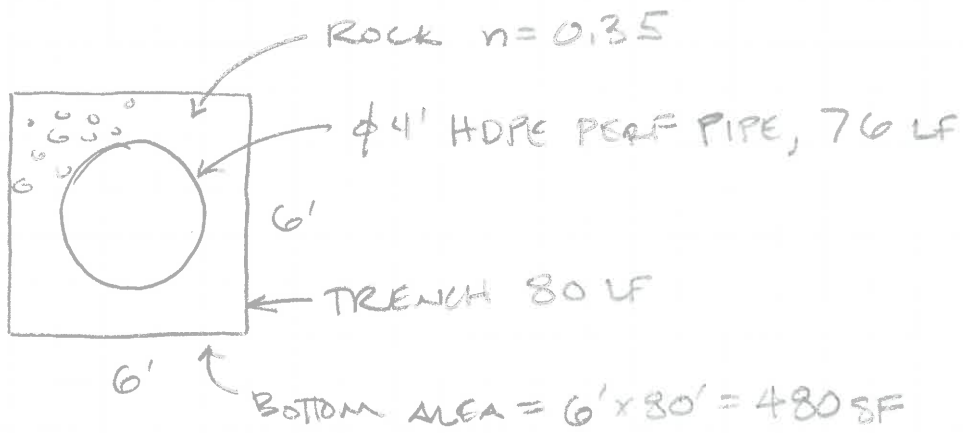 ROCK n=0.35
ϕ4' HDPE PERF PIPE, 76 LF
6'
TRENCH 80 LF
6'
BOTTOM AREA = 6'x80' = 480 SF